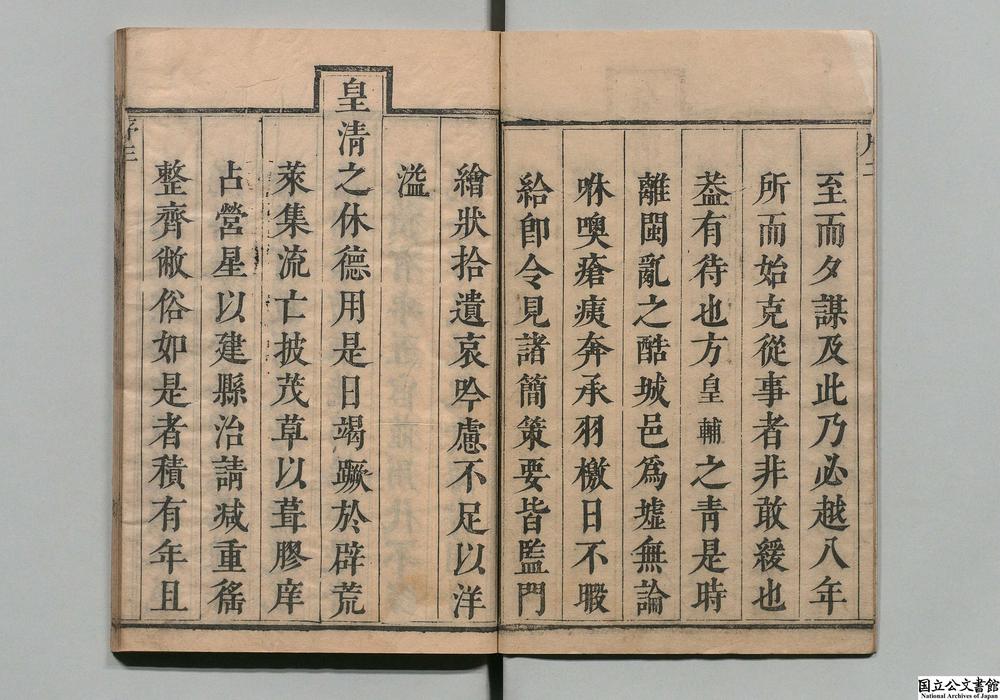 至而夕謀及此乃必越八年
所而始克從事者非敢緩也
葢有待也方皇輔之青是時
離閩亂之酷城邑爲墟無論
咻噢瘡痍奔承羽檄日不暇
給卽令見諸簡策要皆監門
繪狀拾遺哀吟慮不足以洋
溢
皇清之休德用是日竭蹶於辟荒
萊集流亡披茂草以葺膠庠
占營星以建縣治請减重徭
整齊敝俗如是者積有年且
序三
国立公文書館
National Archives of Japan